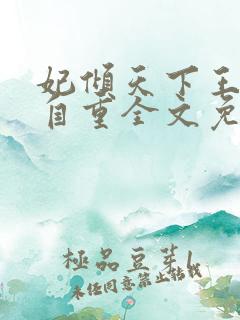 妃倾天下王
自重全文免
極品豆芽
未经同意禁止转载